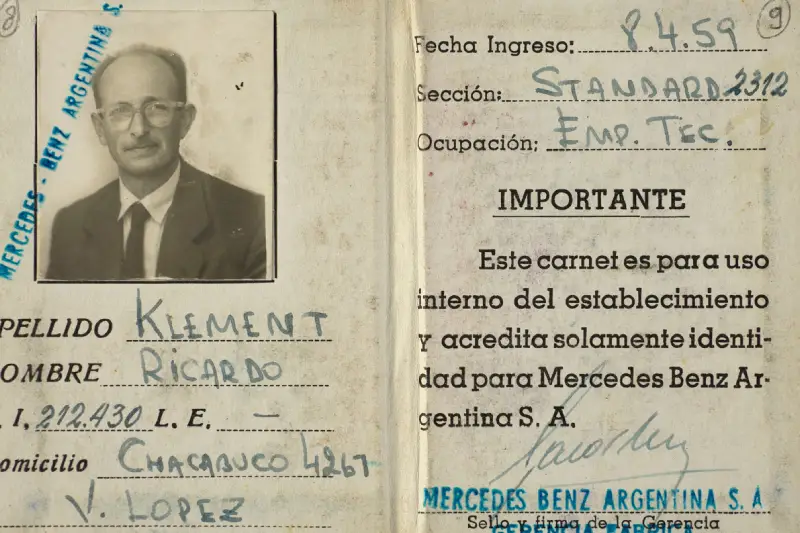 8
MERCEDES-BENZ ARGENTINA S.
PELLIDO KLEMENT
OMBRE RICARDO
. I. 212.430 L. E. —
omicilio CHACABUCO 4267
V. LOPEZ
9
Fecha Ingreso: 8.4.59
Sección: STANDARD 2312
Ocupación: EMP. TEC.
IMPORTANTE
Este carnet es para uso
interno del establecimiento
y acredita solamente identi-
dad para Mercedes Benz Ar-
gentina S. A.
MERCEDES BENZ ARGENTINA S. A
Sello y firma de la Gerencia
GERENCIA FABRICA